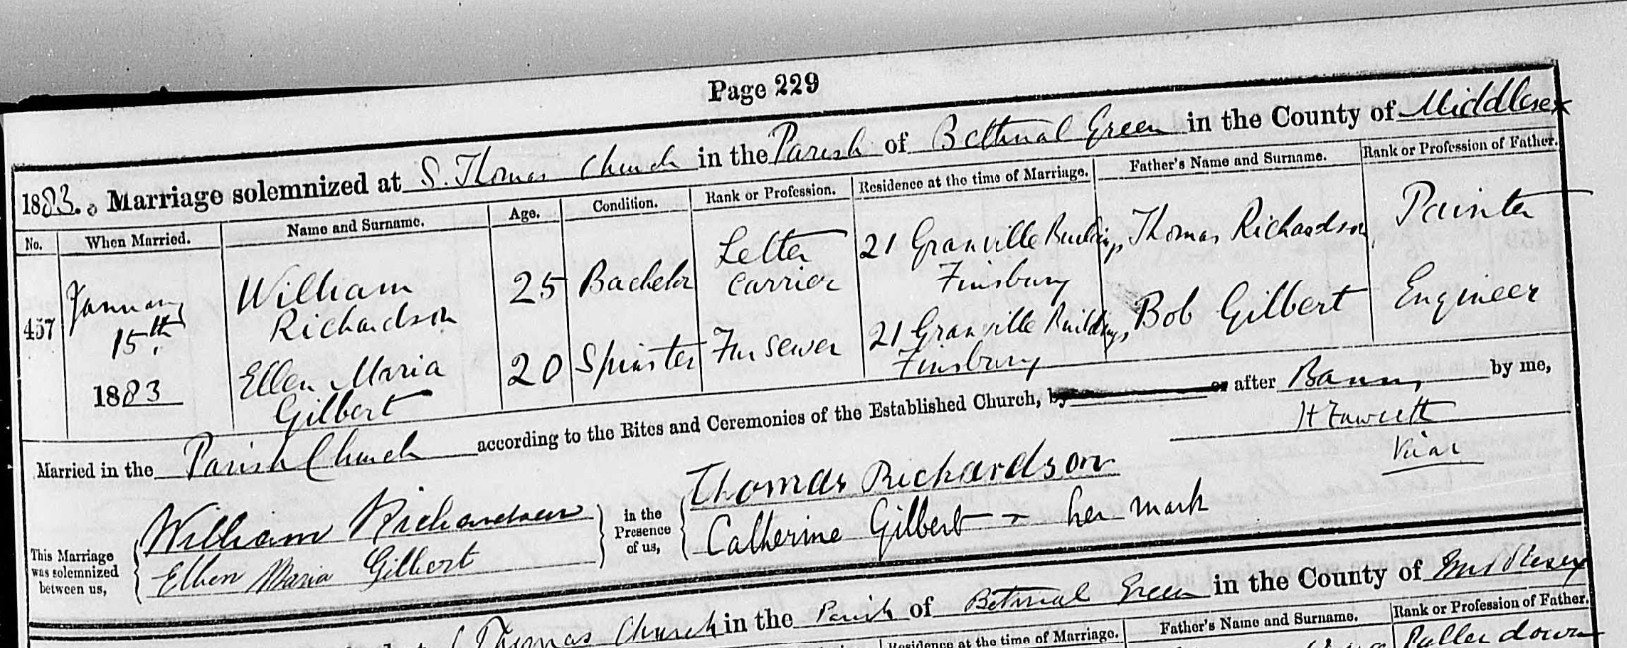 Page 229
1883. Marriage solemnized at S. Thomas Church in the Parish of Bethnal Green in the County of Middlesex
No. When Married. Name and Surname. Age. Condition. Rank or Profession. Residence at the time of Marriage. Father's Name and Surname. Rank or Profession of Father.
457 January 15th 1883
William Richardson 25 Bachelor Letter Carrier 21 Granville Buildings, Finsbury Thomas Richardson, Painter
Ellen Maria Gilbert 20 Spinster Fur sewer 21 Granville Buildings, Finsbury Bob Gilbert Engineer
Married in the Parish Church according to the Rites and Ceremonies of the Established Church, by or after Banns by me,
H Fawcett
Vicar
This Marriage was solemnized between us,
William Richardson
Ellen Maria Gilbert
in the Presence of us,
Thomas Richardson
Catherine Gilbert + her mark
Thomas Church in the Parish of Bethnal Green in the County of Middlesex
Residence at the time of Marriage. Father's Name and Surname. Rank or Profession of Father.
Puller down